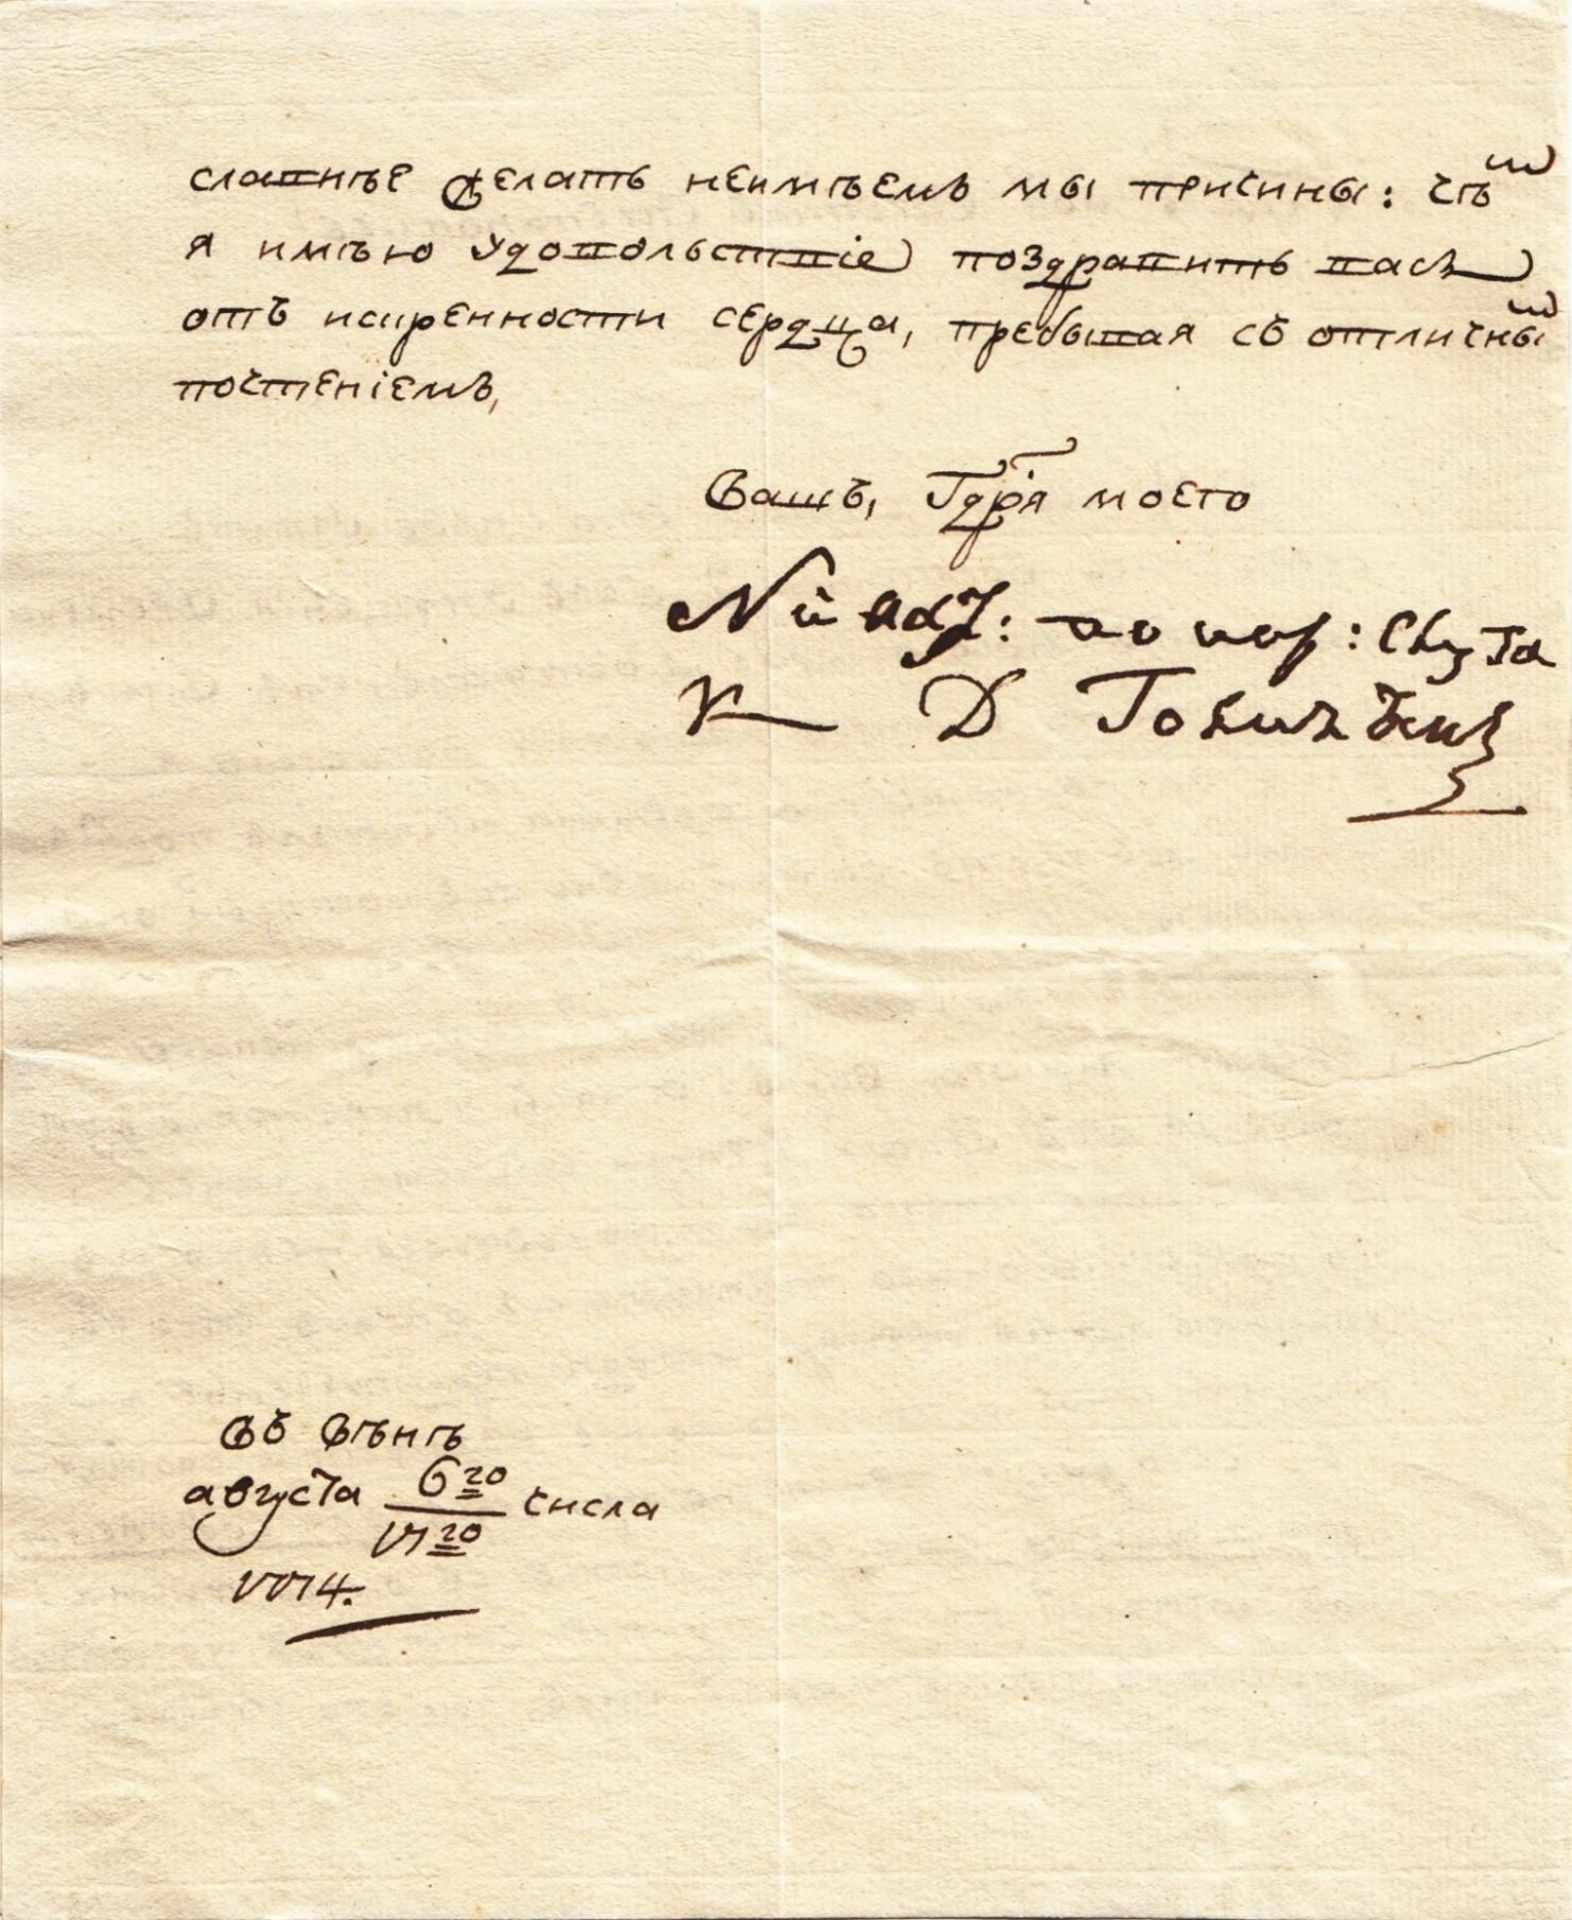 славнѣе делать неимѣемъ мы причины: чѣмъ
я имѣю удовольствіе поздравить васъ
отъ искренности сердца, пребывая съ отличнымъ
почтеніемъ,
Вашъ, Гдря моего
покор: слуга
К Д Голицынъ
Въ Вѣнѣ
августа 6го/17го числа
1774.